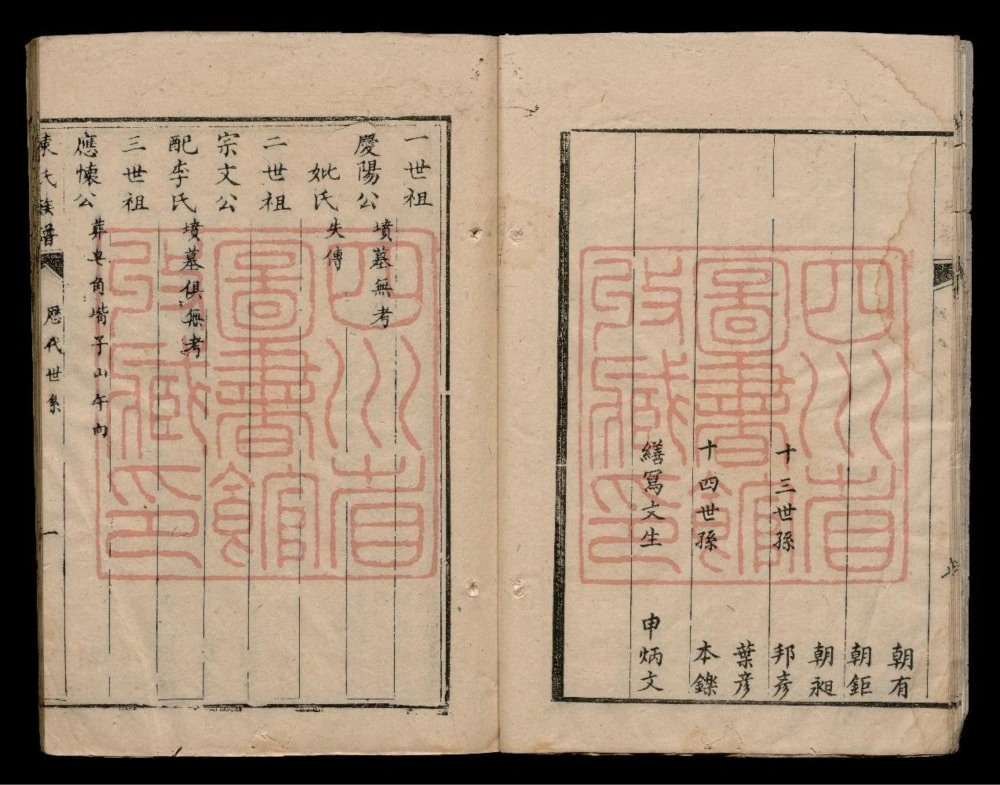 朝有
朝鉅
朝昶
十三世孫 邦彥
葉彥
十四世孫 本鑠
繕寫文生 申炳文
四川省
圖書館
收藏印
一世祖
慶陽公 墳墓無考
妣氏 失傳
二世祖
宗文公
配李氏 墳墓俱無考
三世祖
應懷公 葬皂角嘴子山午向
陳氏族譜 歷代世系 一
四川省
圖書館
收藏印